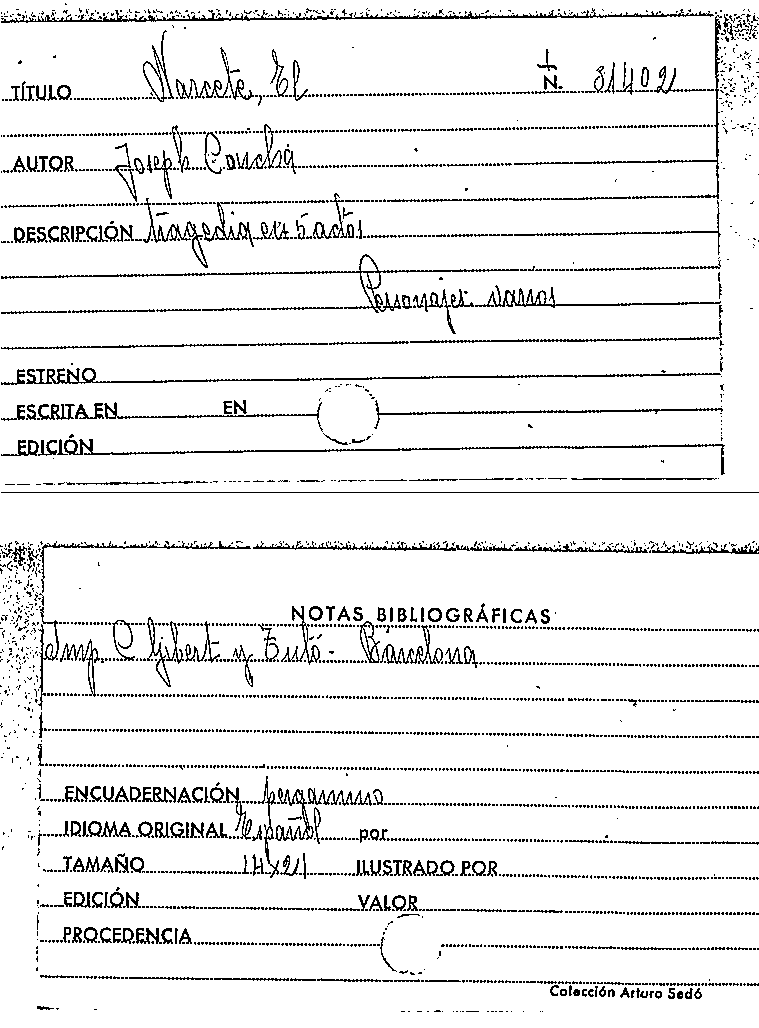 TÍTULO Narcete, El 1/N. 31402
AUTOR Joseph Concha
DESCRIPCIÓN tragedia en 5 actos
Personajes: varios
ESTRENO
ESCRITA EN EN
EDICIÓN
NOTAS BIBLIOGRÁFICAS
Imp. C Gibert y Tutó - Barcelona
ENCUADERNACIÓN pergamino
IDIOMA ORIGINAL Español por
TAMAÑO 14x21 ILUSTRADO POR
EDICIÓN VALOR
PROCEDENCIA
Colección Arturo Sedó